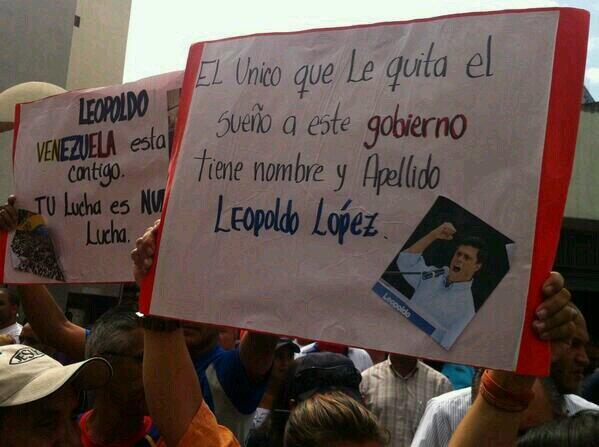 LEOPOLDO
VENEZUELA esta
contigo.
TU Lucha es
Lucha.
EL Unico que Le quita el
sueño a este gobierno
tiene nombre y Apellido
Leopoldo López.
Leopoldo